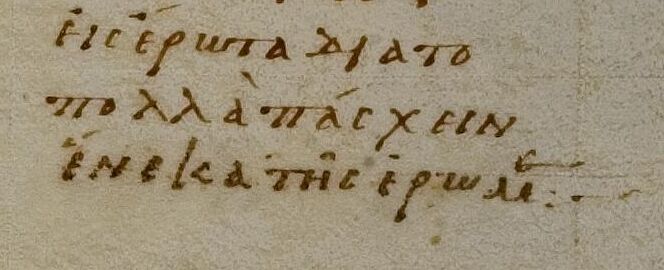 εἰς ἔρωτα διατο
πολλὰ πάσχειν
ἕνεκα τῆς ἐρωμ^ε:.